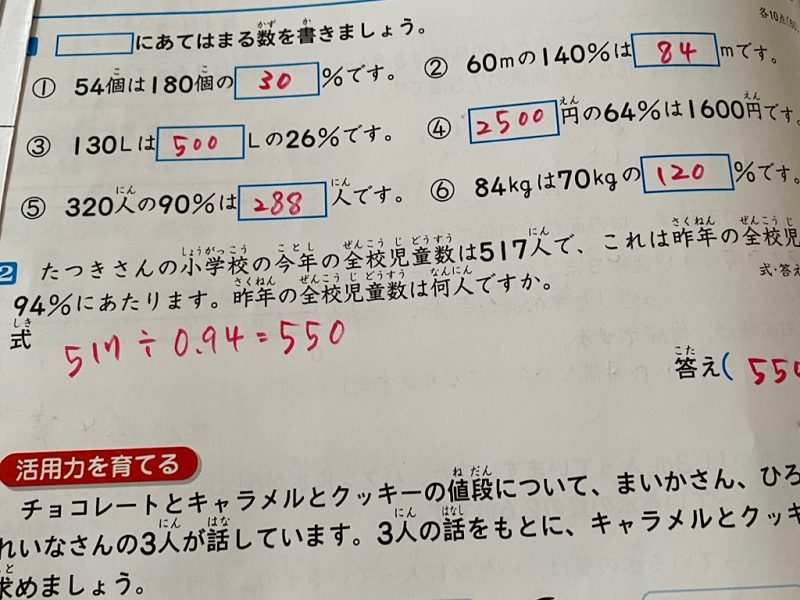 □にあてはまる数を書きましょう。
各10点(60
① 54個は180個の 30 %です。
② 60mの140%は 84 mです。
③ 130Lは 500 Lの26%です。
④ 2500 円の64%は1600円です。
⑤ 320人の90%は 288 人です。
⑥ 84kgは70kgの 120 %です。
2 たつきさんの小学校の今年の全校児童数は517人で、これは昨年の全校児
94%にあたります。昨年の全校児童数は何人ですか。
式・答え
式 517÷0.94=550
答え( 550
活用力を育てる
チョコレートとキャラメルとクッキーの値段について、まいかさん、ひろ
れいなさんの3人が話しています。3人の話をもとに、キャラメルとクッキ
求めましょう。